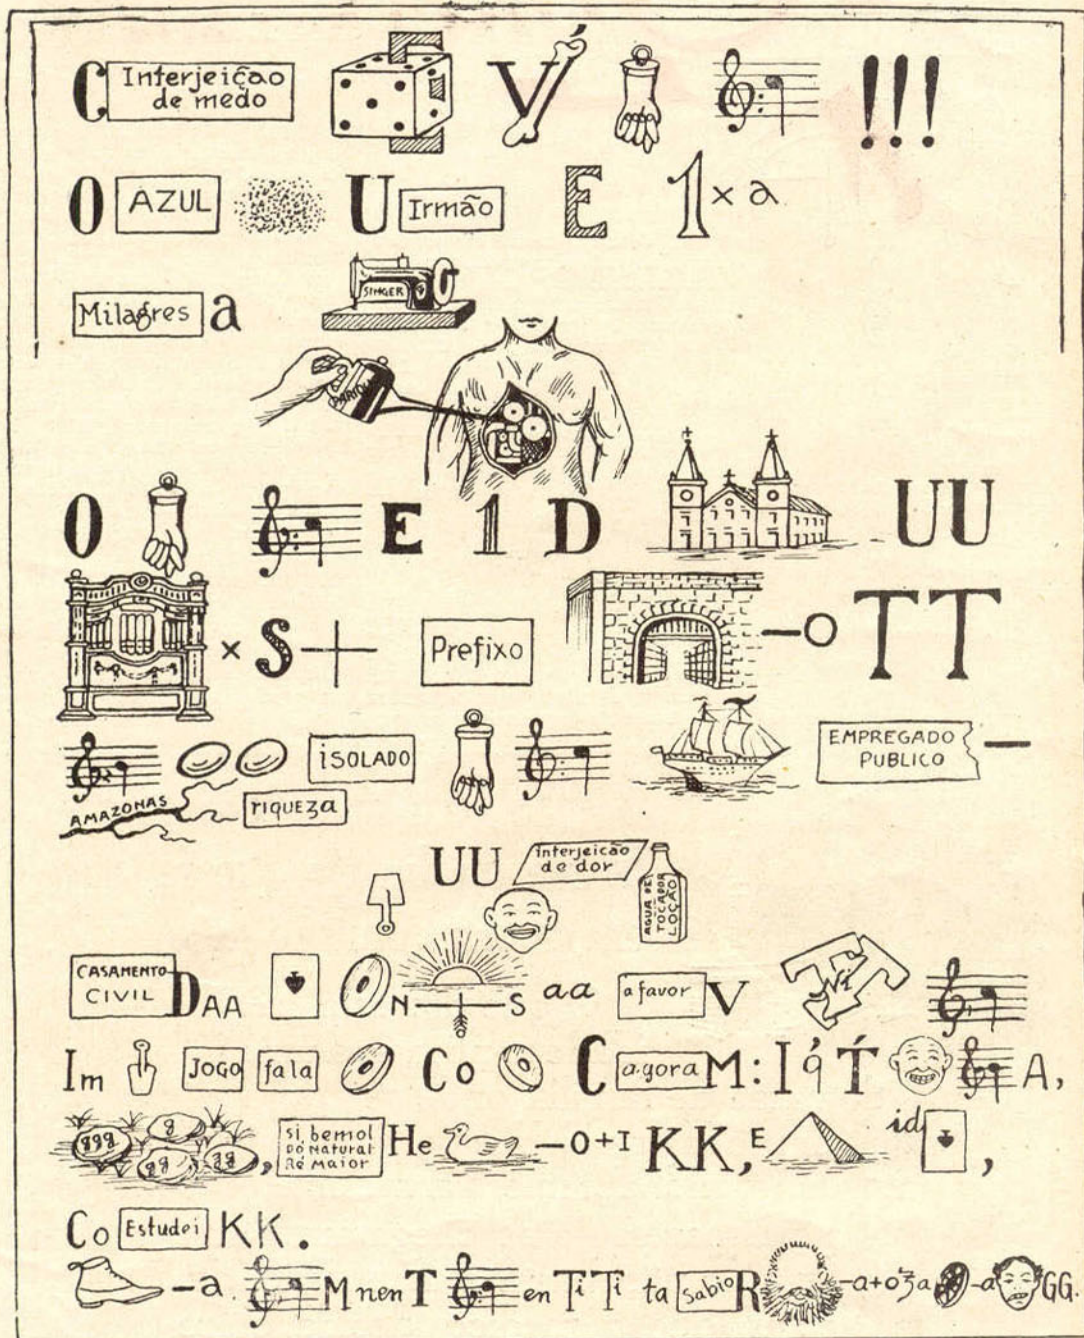 C Interjeição de medo V !!!
O AZUL U Irmão E 1 x a
Milagres a SINGER
O E 1 D UU
x S - + Prefixo - o TT
ISOLADO EMPREGADO PUBLICO -
AMAZONAS riqueza
UU interjeicão de dor AGUA DE TOCADOR LOÇÃO
CASAMENTO CIVIL DAA N S aa a favor V T Ni T
Im JOGO fala Co C agora M: I á T́ A,
ggg g gg gg, si, bemol DÓ NATURAL RÉ MAIOR He -o+I KK, E id ,
Co Estudei KK.
-a. M nen T en Ti Ti ta sabio R -a+o za -a GG.